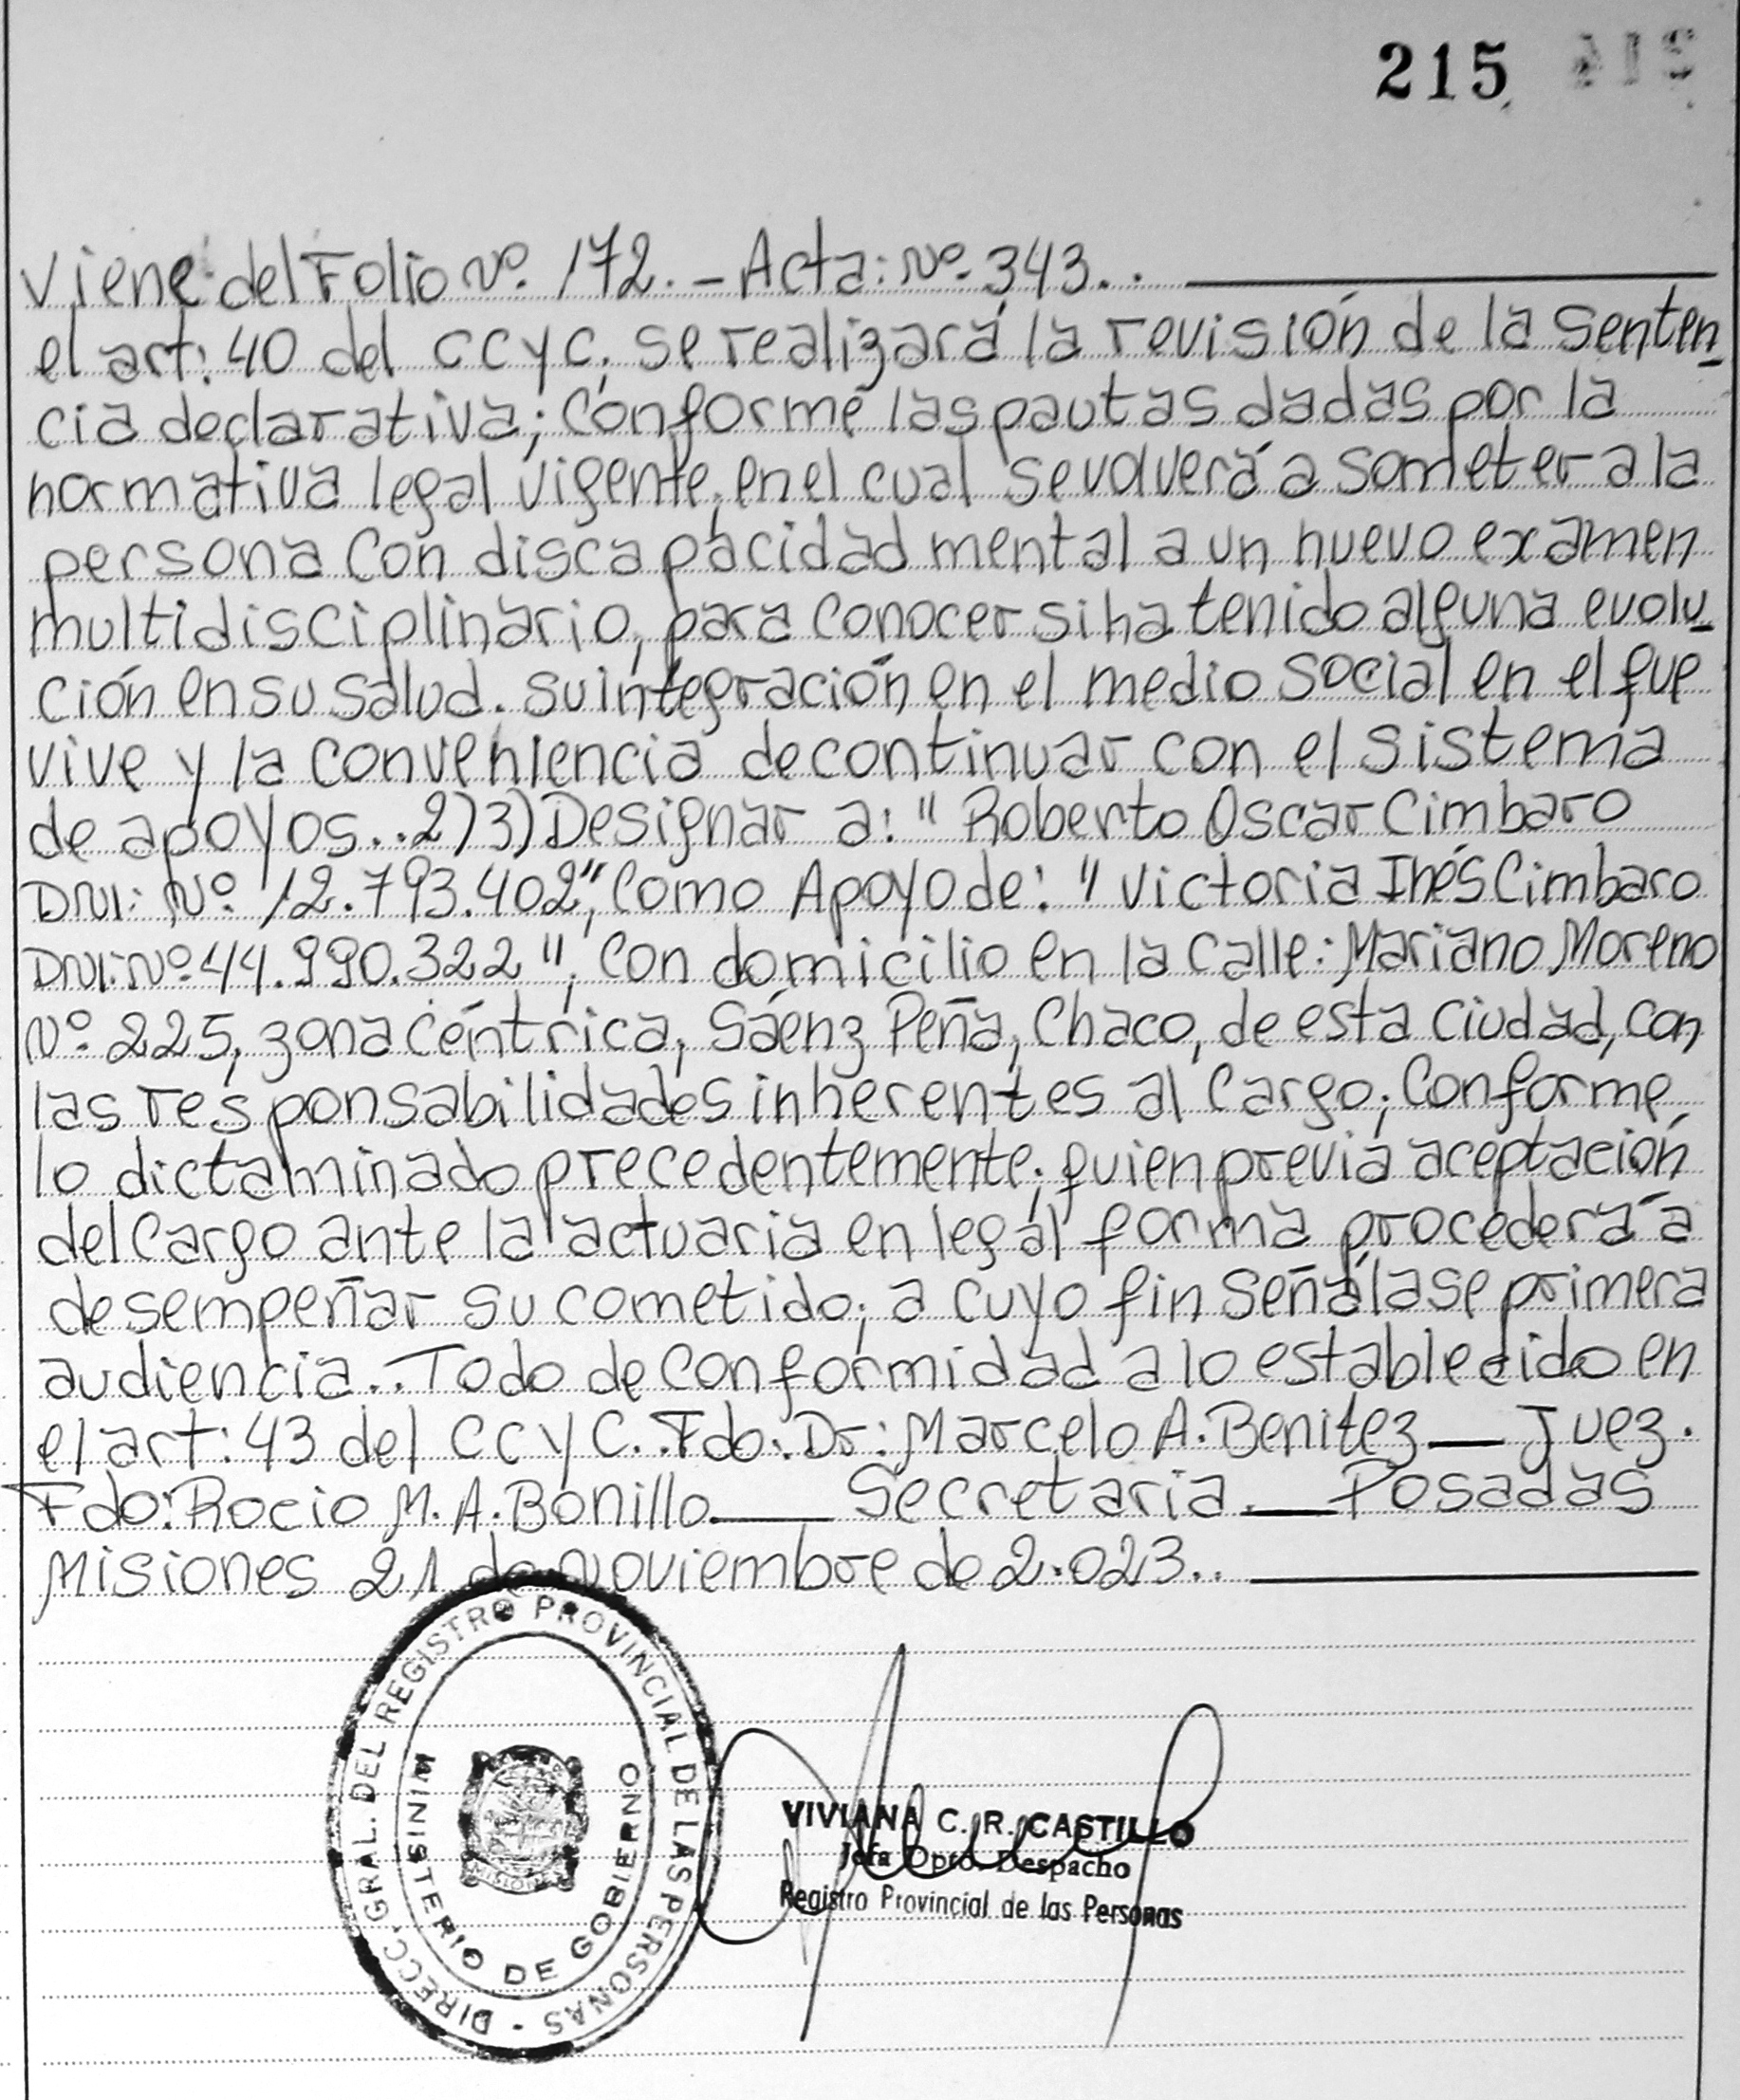 215
Viene del Folio Nº. 172. - Acta: Nº. 343..
el art: 40 del CCyC, se realizará la revisión de la senten_
cia declarativa; conforme las pautas dadas por la
normativa legal vigente, en el cual se volverá a someter a la
persona con discapacidad mental a un nuevo examen
multidisciplinario, para conocer si ha tenido alguna evolu_
ción en su salud. su integración en el medio social en el que
vive y la conveniencia de continuar con el sistema
de apoyos..2)3) Designar a: "Roberto Oscar Cimbaro
DNI: Nº. 12.793.402", como Apoyo de: "Victoria Inés Cimbaro
DNI: Nº 44.990.322", con domicilio en la calle: Mariano Moreno
Nº. 225, zona céntrica, Sáenz Peña, Chaco, de esta ciudad, con
las responsabilidades inherentes al cargo; conforme
lo dictaminado precedentemente; quien previa aceptación
del cargo ante la actuaria en legal forma procederá a
desempeñar su cometido; a cuyo fin señálase primera
audiencia.. Todo de conformidad a lo establecido en
el art: 43 del CCyC. Fdo: Dr: Marcelo A. Benitez — Juez.
Fdo: Rocio M. A. Bonillo. — Secretaria. — Posadas
Misiones 21 de Noviembre de 2.023..
DIRECC. GRAL. DEL REGISTRO PROVINCIAL DE LAS PERSONAS -
MINISTERIO DE GOBIERNO
MISIONES
VIVIANA C. R. CASTILLO
Jefa Dpto. Despacho
Registro Provincial de las Personas